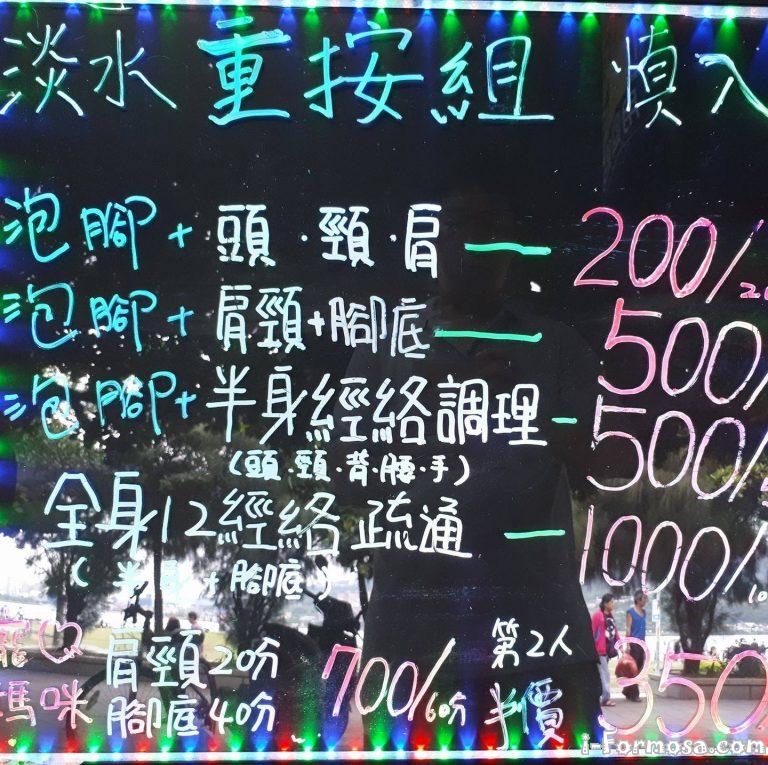 淡水 重按組 慎入
泡腳+頭.頸.肩 — 200/20
泡腳+肩頸+腳底 — 500/
泡腳+半身經絡調理 - 500/
(頭.頸.背.腰.手)
全身12經絡疏通 — 1000/
(半身+腳底)
寵Q媽咪
肩頸20分
腳底40分
700/60分
第2人
半價
350
i-Formosa.com